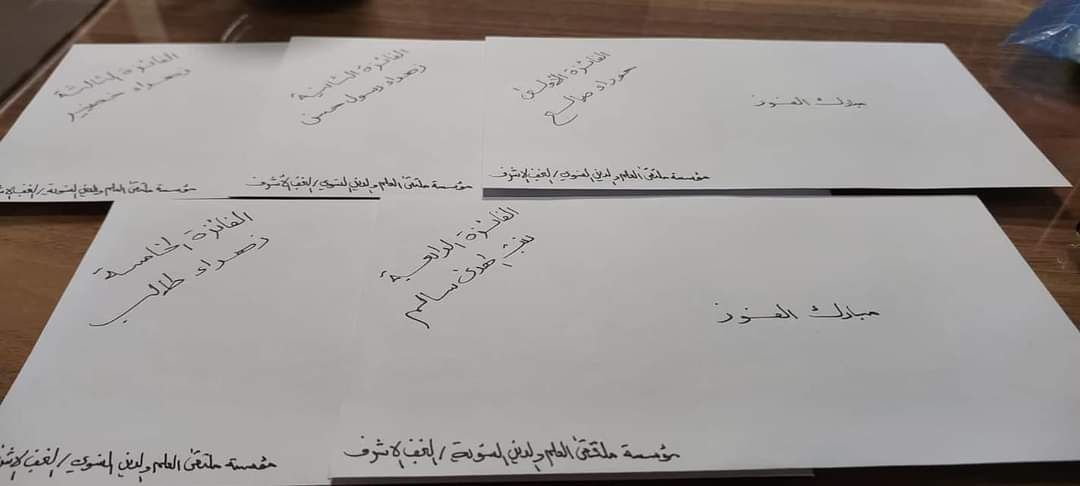 الفائزة الأولى
حوراء صالح
مبارك الفوز
مؤسسة ملتقى العلم والدين النسوي / النجف الاشرف
الفائزة الثانية
زهراء رسول حسن
مؤسسة ملتقى العلم والدين النسوي / النجف الأشرف
الفائزة الثالثة
زهراء
مؤسسة ملتقى العلم والدين النسوية / النجف الاشرف
الفائزة الرابعة
سالم
مبارك الفوز
مؤسسة ملتقى العلم والدين النسوية / النجف الاشرف
الفائزة الخامسة
زهراء طالب
مؤسسة ملتقى العلم والدين النسوي / النجف الاشر